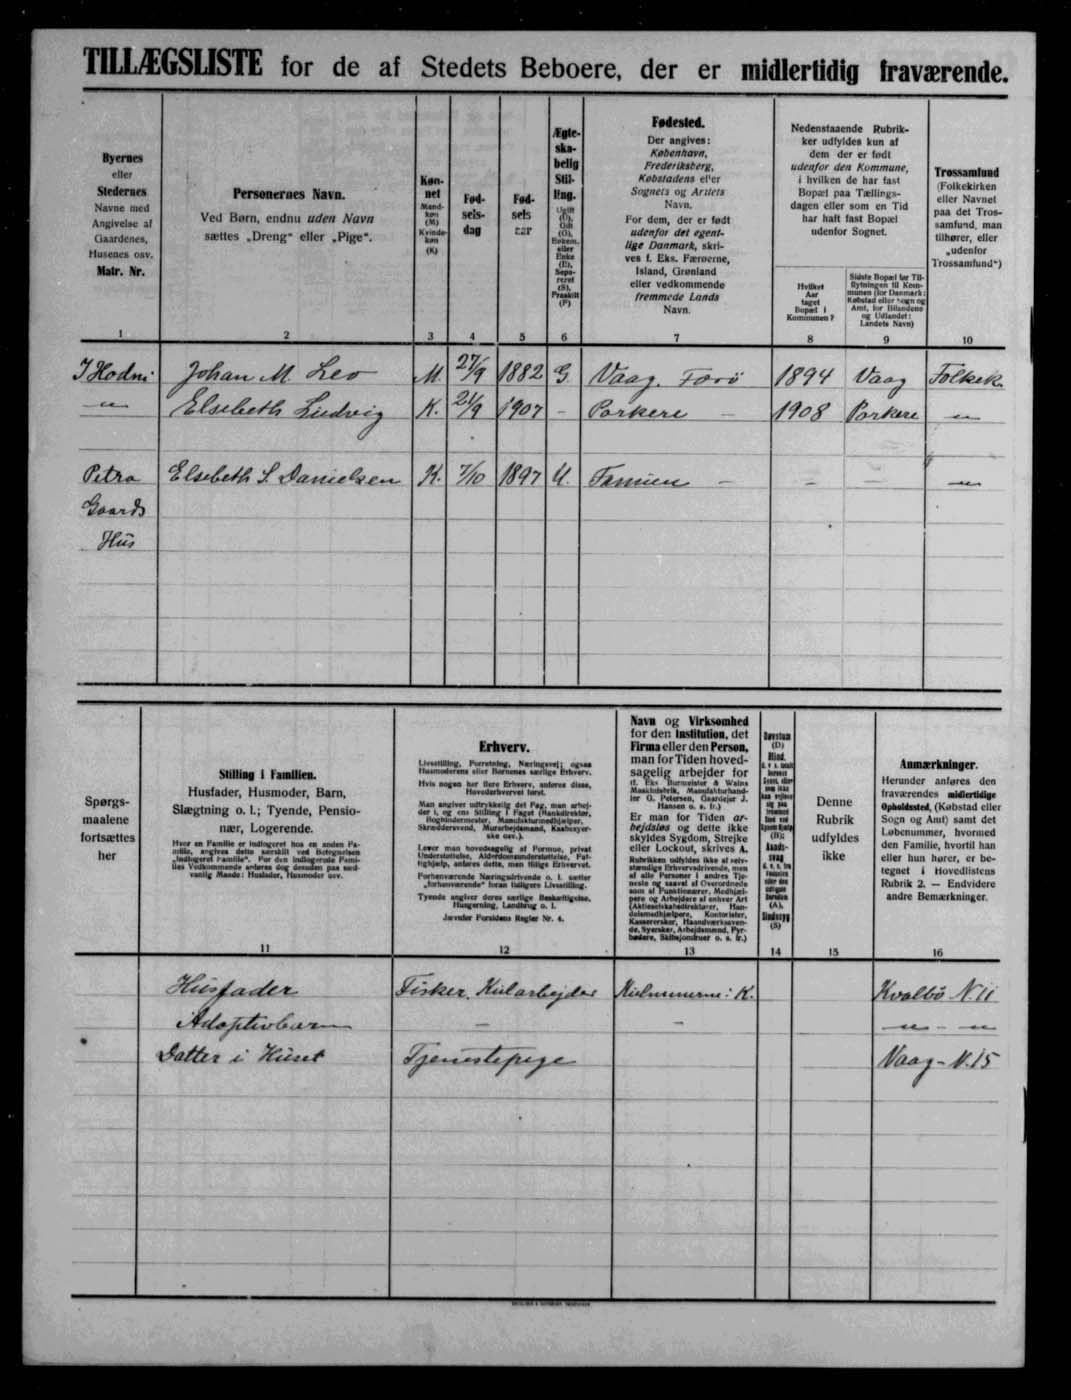 TILLÆGSLISTE for de af Stedets Beboere, der er midlertidig fraværende.
Byernes
eller
Stedernes
Navne med
Angivelse af
Gaardenes,
Husenes osv.
Matr. Nr.
1
Personernes Navn.
Ved Børn, endnu uden Navn
sættes „Dreng“ eller „Pige“.
2
Køn-
net
Mand-
køn
(M)
Kvinde-
køn
(K)
3
Fød-
sels-
dag
4
Fød-
sels
aar
5
Ægte-
ska-
belig
Stil-
ling.
Ugift
(U),
Gift
(G),
Enkem.
eller
Enke
(E),
Sepa-
reret
(S),
Fraskilt
(F)
6
Fødested.
Der angives:
København,
Frederiksberg,
Købstadens eller
Sognets og Amtets
Navn.
For dem, der er født
udenfor det egent-
lige Danmark, skri-
ves f. Eks. Færøerne,
Island, Grønland
eller vedkommende
fremmede Lands
Navn.
7
Nedenstaaende Rubrik-
ker udfyldes kun af
dem der er født
udenfor den Kommune,
i hvilken de har fast
Bopæl paa Tællings-
dagen eller som en Tid
har haft fast Bopæl
udenfor Sognet.
Hvilket
Aar
taget
Bopæl i
Kommunen?
8
Sidste Bopæl før Til-
flytningen til Kom-
munen (for Danmark:
Købstad eller Sogn og
Amt, for Bilandene
og Udlandet:
Landets Navn)
9
Trossamfund
(Folkekirken
eller Navnet
paa det Tros-
samfund, man
tilhører, eller
„udenfor
Trossamfund“)
10
I Hodni Johan M. Leo M 27/9 1882 G. Vaag. Færö 1894 Vaag Folkek.
— " — Elsebeth Ludvig K. 21/9 1907 - Porkere — 1908 Porkere — " —
Petra Elsebeth S. Danielsen K. 7/10 1897 U. Famien — — — — " —
Gaards
Hus
Spørgs-
maalene
fortsættes
her
Stilling i Familien.
Husfader, Husmoder, Barn,
Slægtning o. l.; Tyende, Pensio-
nær, Logerende.
Hvor en Familie er indlogeret hos en anden Fa-
milie, angives dette særskilt ved Betegnelsen
„Indlogeret Familie“. For den indlogerede Fami-
lies Vedkommende anføres dog desuden paa sæd-
vanlig Maade: Husfader, Husmoder osv.
11
Erhverv.
Livsstilling, Forretning, Næringsvej; ogsaa
Husmoderens eller Børnenes særlige Erhverv.
Hvis nogen har flere Erhverv, anføres disse,
Hovederhvervet først.
Man angiver udtrykkelig det Fag, man arbej-
der i, og ens Stilling i Faget (Bankdirektør,
Bogbindermester, Manufakturmedhjælper,
Skræddersvend, Murarbejdsmand, Kaabesyer-
ske osv.).
Lever man hovedsagelig af Formue, privat
Understøttelse, Alderdomsunderstøttelse, Fat-
tighjælp, anføres dette, men tillige Erhvervet.
Forhenværende Næringsdrivende o. l. sætter
„forhenværende“ foran tidligere Livsstilling.
Tyende angiver deres særlige Beskæftigelse,
Husgerning, Landbrug o. l.
Jævnfør Forsidens Regler Nr. 4.
12
Navn og Virksomhed
for den Institution, det
Firma eller den Person,
man for Tiden hoved-
sagelig arbejder for
(f. Eks. Burmeister & Wains
Maskinfabrik, Manufakturhand-
ler G. Petersen, Gaardejer J.
Hansen o. s. fr.)
Er man for Tiden ar-
bejdsløs og dette ikke
skyldes Sygdom, Strejke
eller Lockout, skrives A.
Rubrikken udfyldes ikke af selv-
stændige Erhvervsdrivende, men
af alle Personer i andres Tje-
neste og saavel af Overordnede
som af Funktionærer, Medhjæl-
pere og Arbejdere af enhver Art
(Aktieselskabsdirektører, Han-
delsmedhjælpere, Kontorister,
Kasserersker, Haandværkssven-
de, Syersker, Arbejdsmænd, Fyr-
bødere, Skibsjomfruer o. s. fr.)
13
Døvstum
(D)
Blind,
(B);
Aands-
svag
(A),
Sindssyg
(S)
14
Denne
Rubrik
udfyldes
ikke
15
Anmærkninger.
Herunder anføres den
fraværendes midlertidige
Opholdssted, (Købstad eller
Sogn og Amt) samt det
Løbenummer, hvormed
den Familie, hvortil han
eller hun hører, er be-
tegnet i Hovedlistens
Rubrik 2. — Endvidere
andre Bemærkninger.
16
Husfader Fisker, Kularbejder Kulminerne i K. Kvalbö N. 11
Adoptivbarn — — — " — "
Datter i Huset Tjenestepige Vaag - N. 15